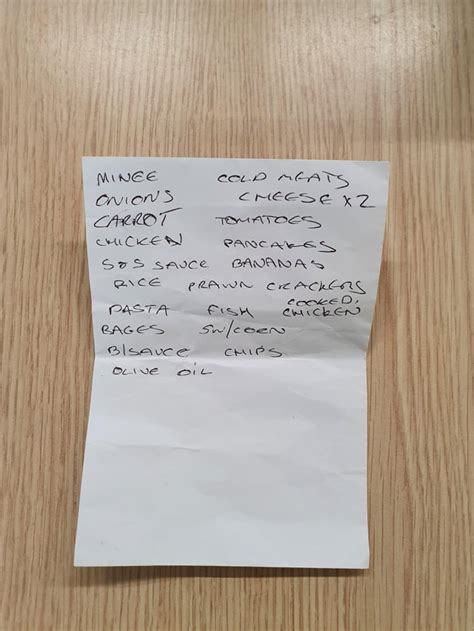 MINEE COLD MEATS
ONIONS CHEESE x2
CARROT TOMATOES
CHICKEN PANCAKES
S&S SAUCE BANANAS
RICE PRAWN CRACKERS
PASTA FISH COOKED, CHICKEN
BAGES SW/CORN
B/SAUCE CHIPS
OLIVE OIL